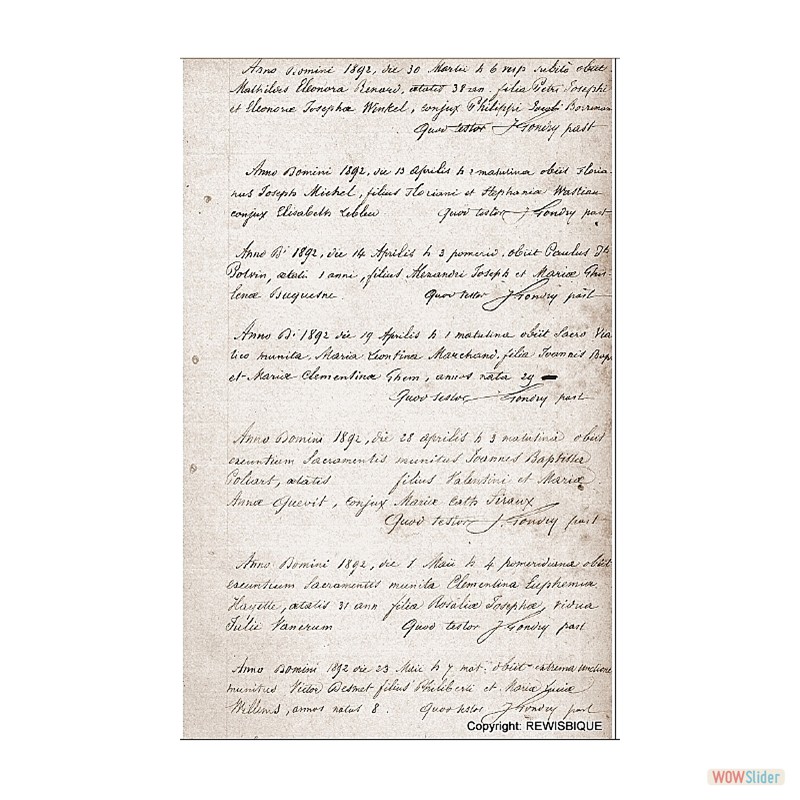 Anno Domini 1892, die 30 Martii h 6 vesp subito obiit
Mathildis Eleonora Renard, ætatis 38 an. filia Petri Josephi
et Eleonoræ Josephæ Winkel, conjux Philippi Josephi Borreman
Quod testor J Gondry past
Anno Domini 1892, die 13 Aprilis h 2 matutina obiit Floria-
nus Joseph Michel, filius Floriani et Stephania Wasteau
conjux Elisabeth Lebleu Quod testor J Gondry past
Anno Di 1892, die 14 Aprilis h 3 pomerid. obiit Paulus Jh
Potvin, ætatis 1 anni, filius Alexandri Joseph et Mariæ Ghis
lenæ Duquesne Quod testor J Gondry past
Anno Di 1892 die 19 Aprilis h 1 matutina obiit Sacro Via
tico munita, Maria Leontina Marchand, filia Joannis Bap
et Mariæ Clementinæ Ghem, annos nata 29 —
Quod testor J Gondry past
Anno Domini 1892, die 28 aprilis h 3 matutina obiit
exeuntium Sacramentis munitus Joannes Baptista
Coliart, ætatis filius Valentini et Mariæ
Annæ Quevit, conjux Mariæ Cath Tiraux
Quod testor J. Gondry past
Anno Domini 1892, die 1 Maii h 4 pomeridiana obiit
exeuntium Sacramentis munita Clementina Euphemia
Hayette, ætatis 31 ann filia Rosaliæ Josephæ, vidua
Julii Vanerum Quod testor J Gondry past
Anno Domini 1892 die 23 Maii h 7 mat. obiit extrema unctione
munitus Victor Desmet filius Philiberti et Maria Lucia
Willems, annos natus 8. Quod testor J Gondry past
Copyright: REWISBIQUE
WOWSlider